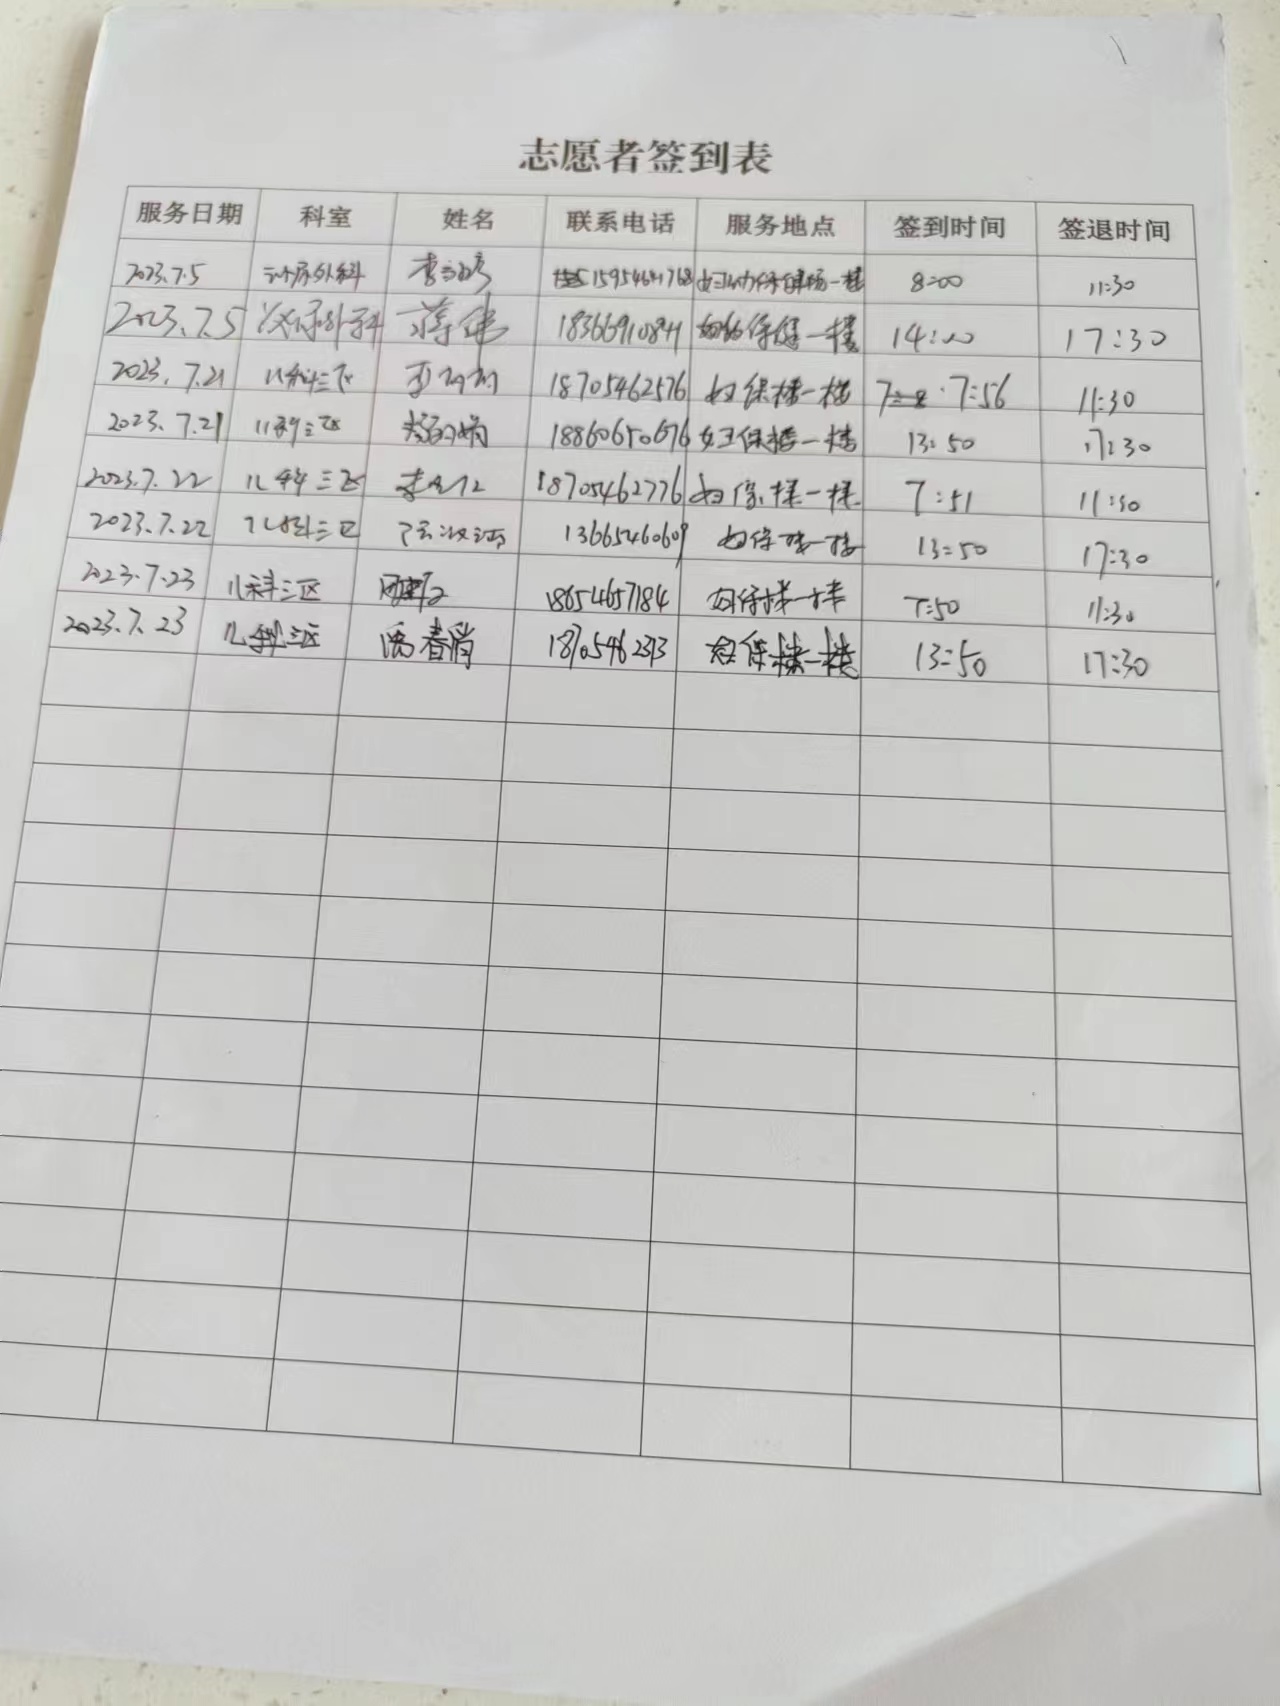 志愿者签到表
服务日期 科室 姓名 联系电话 服务地点 签到时间 签退时间
2023.7.5 泌尿外科 15954641768 一楼 8:00 11:30
2023.7.5 泌尿外科 蒋伟 妇幼保健一楼 14:00 17:30
2023.7.21 儿科三区 18705462576 妇保楼一楼 7:56 11:30
2023.7.21 儿科三区 18860650676 妇保楼一楼 13:50 17:30
2023.7.22 儿科三区 18705462776 妇保楼一楼 7:51 11:30
2023.7.22 儿科三区 13665460609 妇保楼一楼 13:50 17:30
2023.7.23 儿科三区 18654657184 妇保楼一楼 7:50 11:30
2023.7.23 儿科三区 18705462313 妇保楼一楼 13:50 17:30